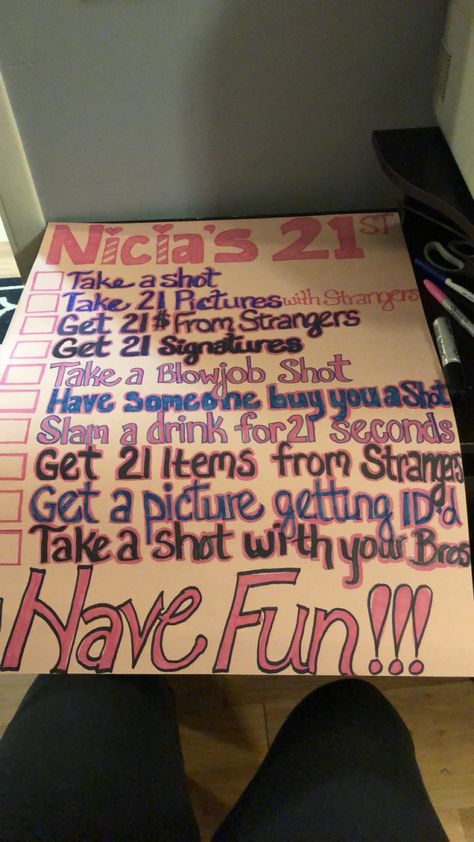 Nicia's 21ST
Take a shot
Take 21 Pictures with Strangers
Get 21$ From Strangers
Get 21 Signatures
Take a Blowjob Shot
Have someone buy you a Shot
Slam a drink for 21 seconds
Get 21 Items from Strangers
Get a picture getting ID'd
Take a Shot with your Bros
Have Fun!!!